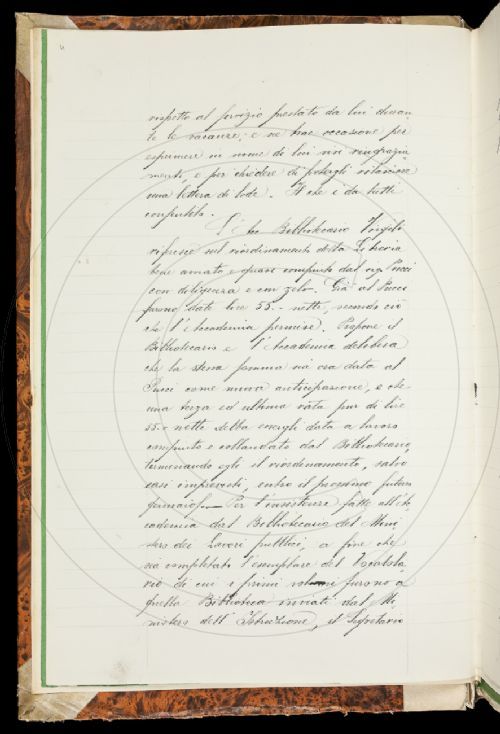 rispetto al servizio prestato da lui duran-
te le vacanze; e ne trae occasione per
esprimere in nome di lui vivi ringrazia-
menti, e per chiedere di potergli rilasciare
una lettera di lode. Il che è da tutti
consentito.
L'Acc. Bibliotecario
riferisce sul riordinamento della Libreria
bene avviato e quasi compiuto dal sig. Pucci
con diligenza e con zelo. Già al Pucci
furono date lire 55.- nette, secondo ciò
che l'Accademia permise. Propone il
Bibliotecario e l'Accademia delibera
che la stessa somma sia ora data al
Pucci come nuova anticipazione, e che
una terza ed ultima rata pur di lire
55.- nette debba essergli data a lavoro
compiuto e collaudato dal Bibliotecario,
terminando egli il riordinamento, salvo
casi imprevisti, entro il prossimo futuro
gennaio. — Per l'insistenza fatta all'Ac-
cademia dal Bibliotecario del Mini-
stero dei Lavori pubblici, a fine che
sia completato l'esemplare del Vocabola-
rio di cui i primi volumi furono a
quella Biblioteca inviati dal Mi-
nistero dell'Istruzione, il Segretario